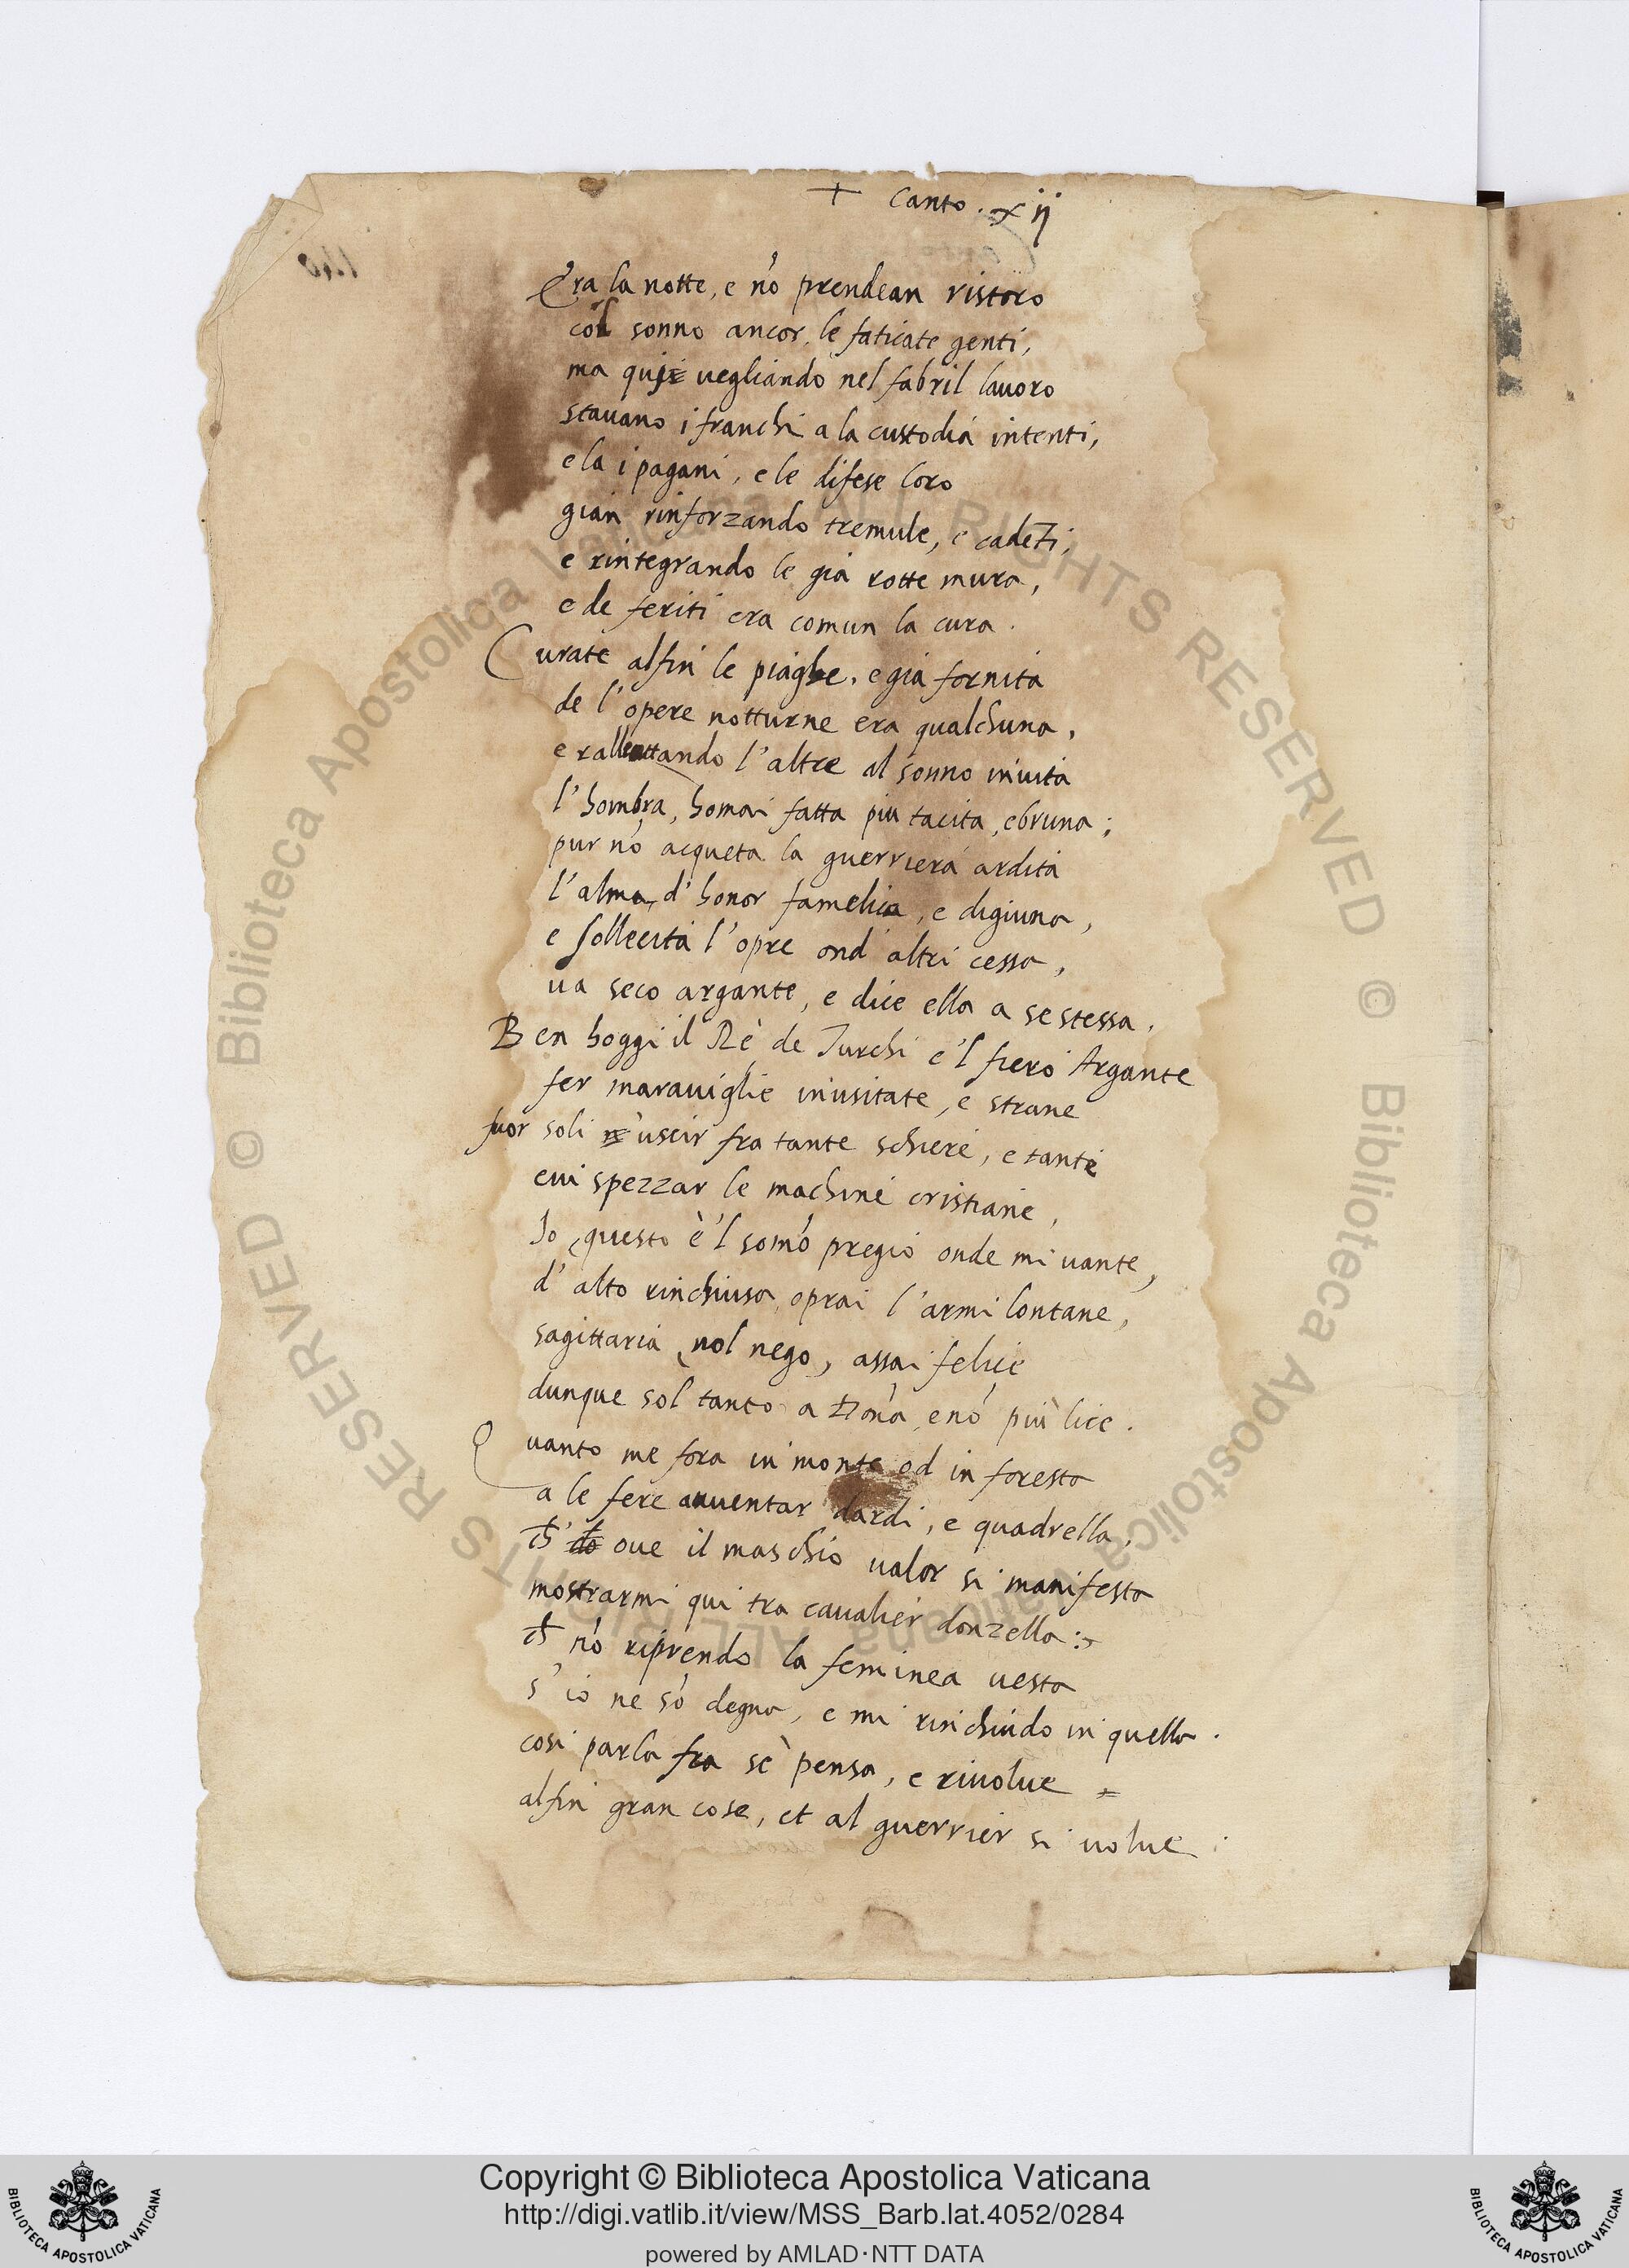 + Canto . xij
Era la notte, e nō prendean ristoro
col sonno ancor le faticate genti,
ma qui vegliando nel fabril lauoro
stauano i franchi a la custodia intenti,
e la i pagani, e le difese loro
gian rinforzando tremule, e cadēti,
e rintegrando le gia rotte mura,
e de feriti era comun la cura.
Curate alfin le piaghe, e gia fornita
de l'opere notturne era qualchuna,
e rallentando l'altre al sonno inuita
l'hombra, homai fatta piu tacita, e bruna;
pur nō acqueta la guerriera ardita
l'alma d'honor famelica, e digiuna,
e sollecita l'opre ond'altri cessa,
ua seco argante, e dice ella a se stessa.
Ben hoggi il Rè de Turchi e'l fiero Argante
fer marauiglie inusitate, e strane
fuor soli uscir fra tante schiere, e tante
e ui spezzar le machine cristiane,
Io, questo è'l somō pregio onde mi uante,
d'alto rinchiusa, oprai l'armi lontane,
sagittaria, nol nego, assai felice
dunque sol tanto a Dōna, e nō più lice.
Quanto me fora in monte od in foresta
a le fere auuentar dardi, e quadrella,
ch' oue il maschio valor si manifesta
mostrarmi qui tra caualier donzella:
ch nō riprendo la feminea uesta
s'io ne sō degna, e mi rinchiudo in quella.
cosi parla fra sè pensa, e riuolue =
alfin gran cose, et al guerrier si uolue.
BIBLIOTECA APOSTOLICA VATICANA
Copyright © Biblioteca Apostolica Vaticana
http://digi.vatlib.it/view/MSS_Barb.lat.4052/0284
powered by AMLAD·NTT DATA
BIBLIOTECA APOSTOLICA VATICANA
© Biblioteca Apostolica Vaticana ALL RIGHTS RESERVED © Biblioteca Apostolica Vaticana ALL RIGHTS RESERVED